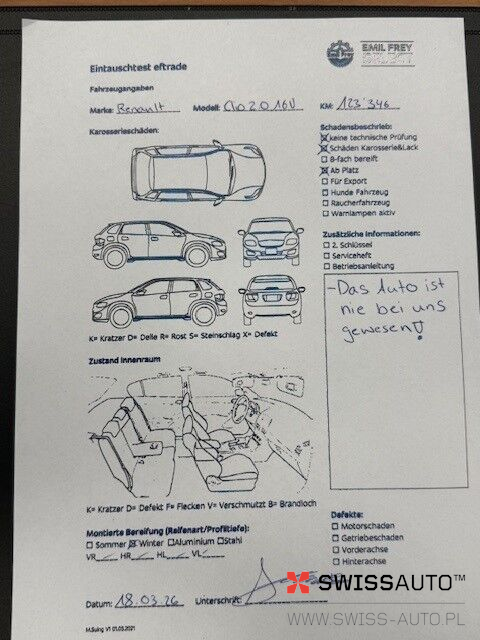 EMIL FREY
Eintauschtest eftrade
Fahrzeugangaben
Marke: Renault Modell: Clio 2.0 16V KM: 123'346
Karosserieschäden:
Schadensbeschrieb:
keine technische Prüfung
Schäden Karosserie&Lack
8-fach bereift
Ab Platz
Für Export
Hunde Fahrzeug
Raucherfahrzeug
Warnlampen aktiv
Zusätzliche Informationen:
2. Schlüssel
Serviceheft
Betriebsanleitung
-Das Auto ist
nie bei uns
gewesen!
K= Kratzer D= Delle R= Rost S= Steinschlag X= Defekt
Zustand Innenraum
K= Kratzer D= Defekt F= Flecken V= Verschmutzt B= Brandloch
Montierte Bereifung (Reifenart/Profiltiefe):
Sommer Winter Aluminium Stahl
VR HR HL VL
Defekte:
Motorschaden
Getriebeschaden
Vorderachse
Hinterachse
Datum: 18.03.26 Unterschrift:
M.Suing V1 01.03.2021
SWISSAUTO™
WWW.SWISS-AUTO.PL